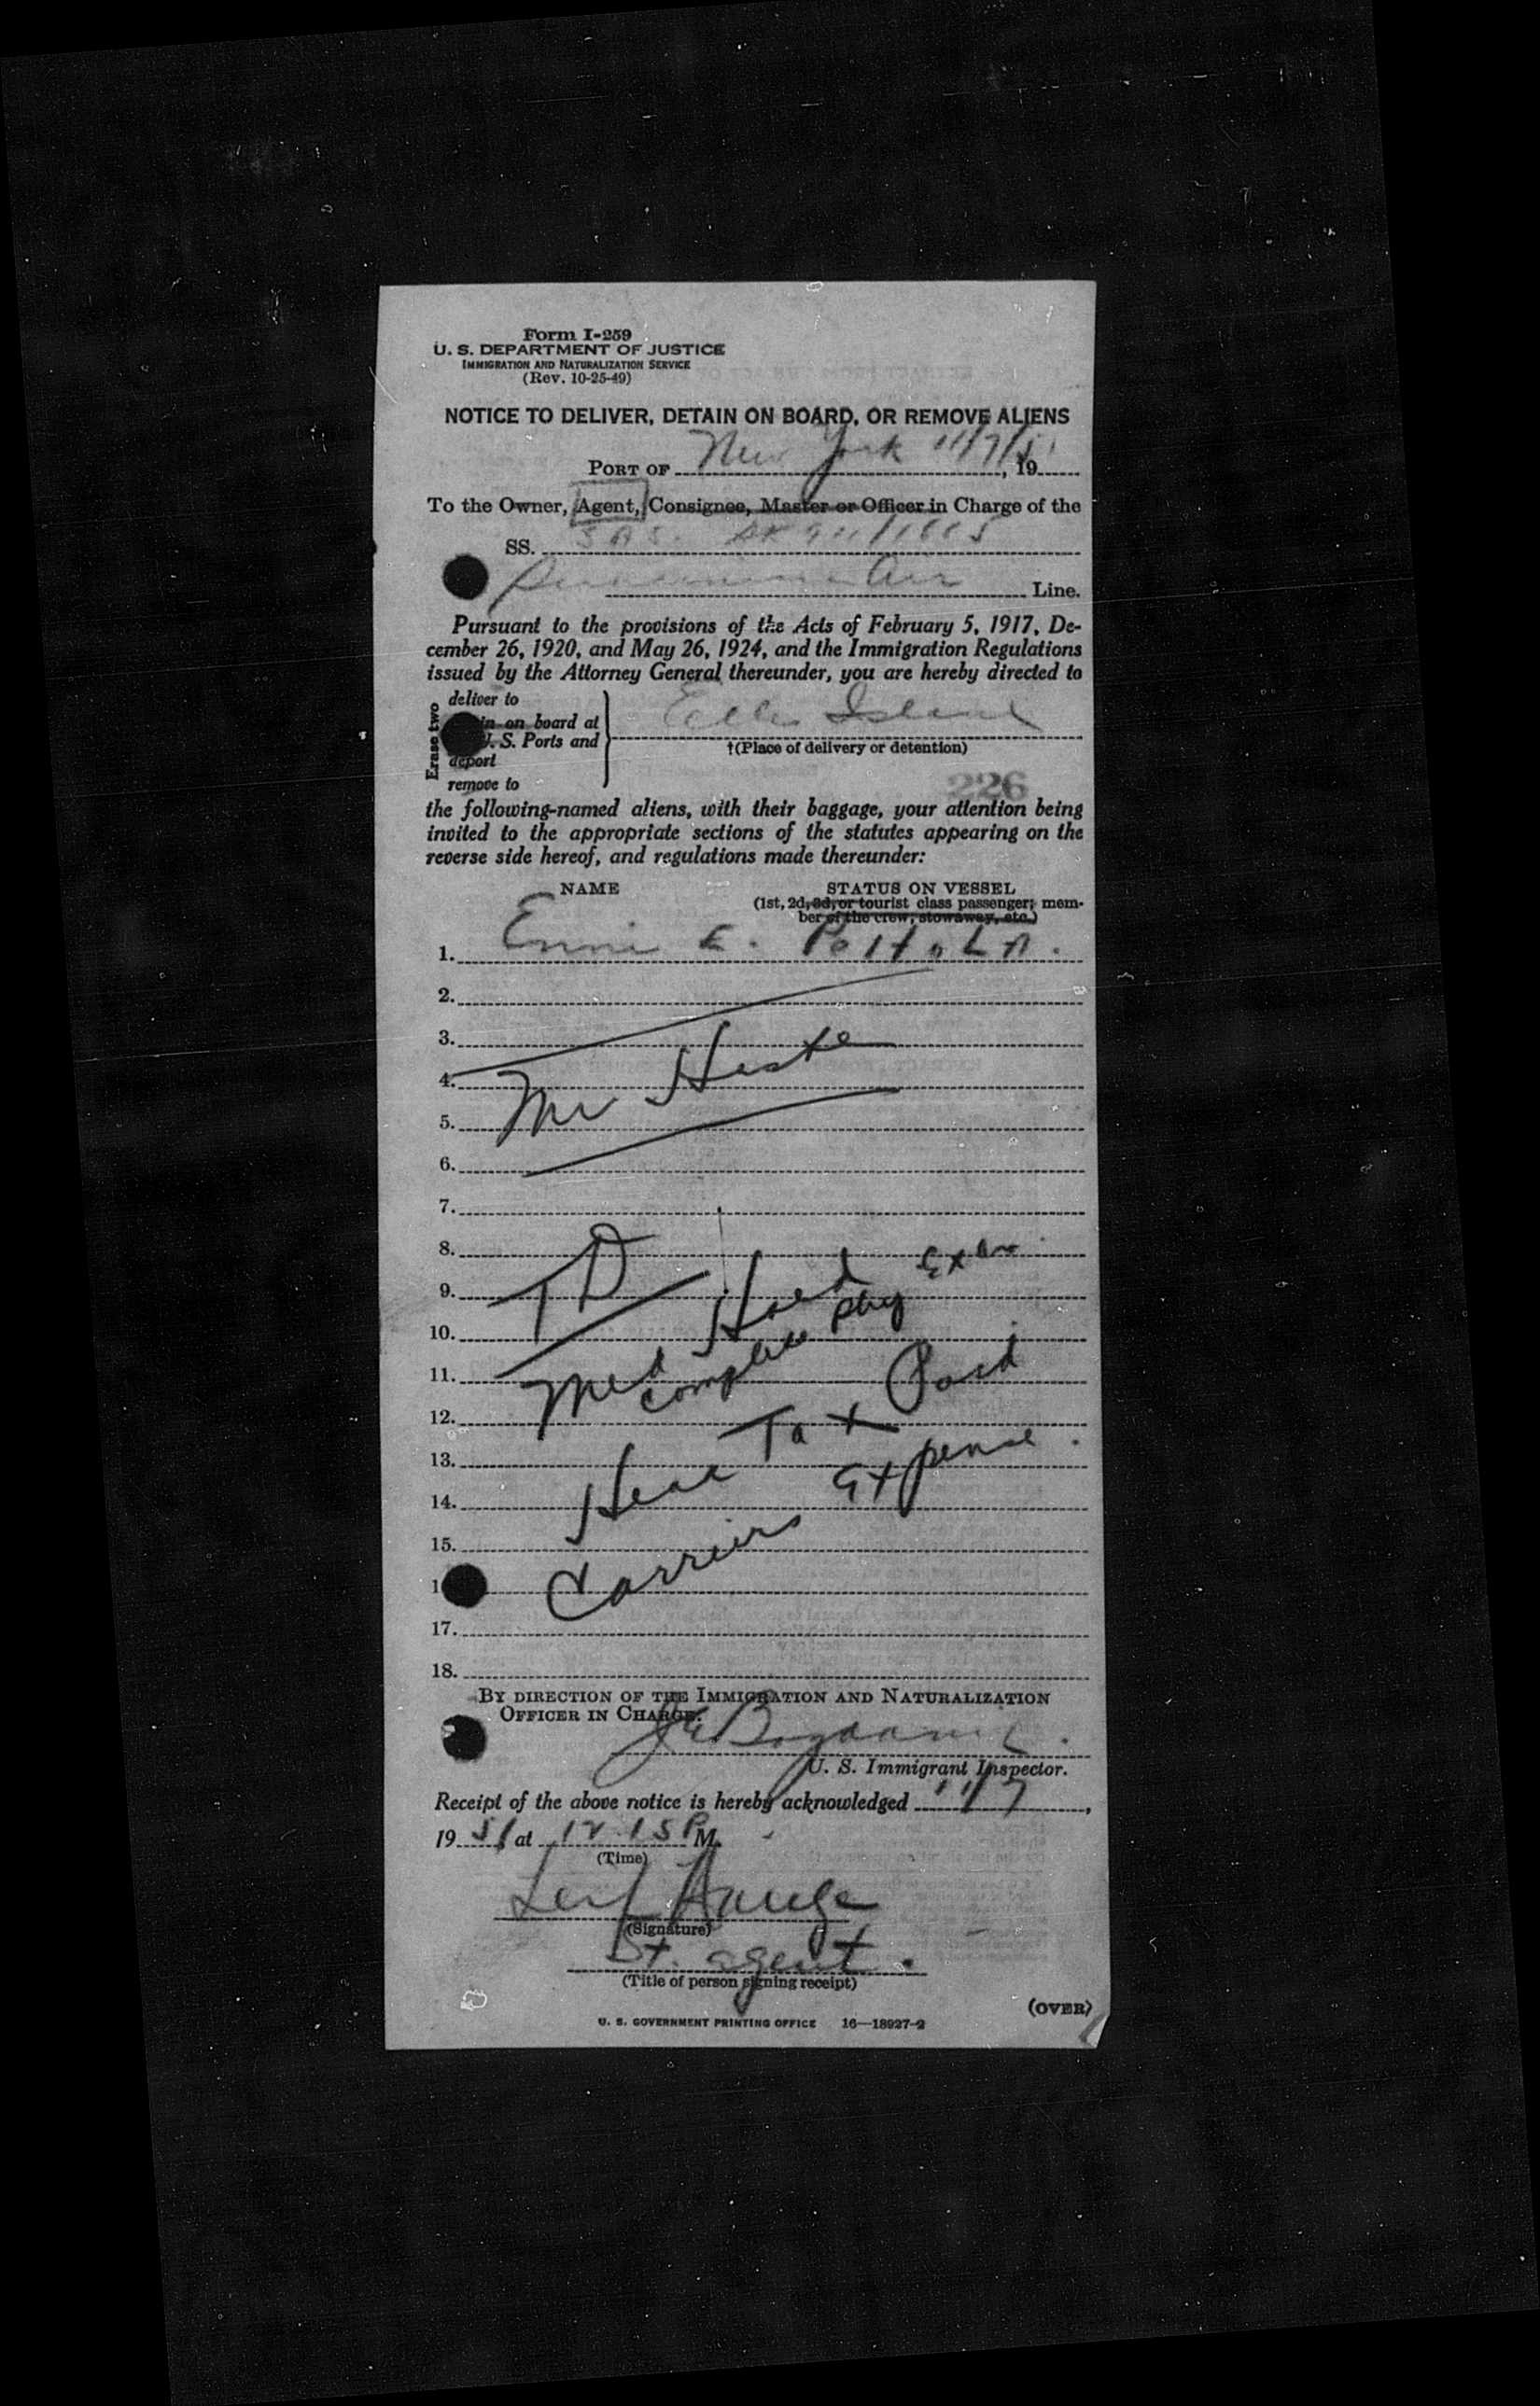 Form I-259
U. S. DEPARTMENT OF JUSTICE
IMMIGRATION AND NATURALIZATION SERVICE
(Rev. 10-25-49)
NOTICE TO DELIVER, DETAIN ON BOARD, OR REMOVE ALIENS
PORT OF New York 11/7/51, 19
To the Owner, Agent, Consignee, Master or Officer in Charge of the
SS. SAS.
Air Line.
Pursuant to the provisions of the Acts of February 5, 1917, De-
cember 26, 1920, and May 26, 1924, and the Immigration Regulations
issued by the Attorney General thereunder, you are hereby directed to
Erase two
deliver to
on board at Ellis Island
U. S. Ports and
†(Place of delivery or detention)
deport
remove to
226
the following-named aliens, with their baggage, your attention being
invited to the appropriate sections of the statutes appearing on the
reverse side hereof, and regulations made thereunder:
NAME STATUS ON VESSEL
(1st, 2d, 3d, or tourist class passenger; mem-
ber of the crew, stowaway, etc.)
1. E. Peltola.
2.
3.
4. Mr
5.
6.
7.
8.
9. TD
10.
11. Med Hold
complete phy Exam
12.
13. Head Tax Paid
14.
15.
Carriers Expense.
17.
18.
BY DIRECTION OF THE IMMIGRATION AND NATURALIZATION
OFFICER IN CHARGE:
U. S. Immigrant Inspector.
Receipt of the above notice is hereby acknowledged 11/7,
1951 at 12 15 P M.
(Time)
Leif Hauge
(Signature)
St. agent.
(Title of person signing receipt)
(OVER)
U. S. GOVERNMENT PRINTING OFFICE 16—18927-2